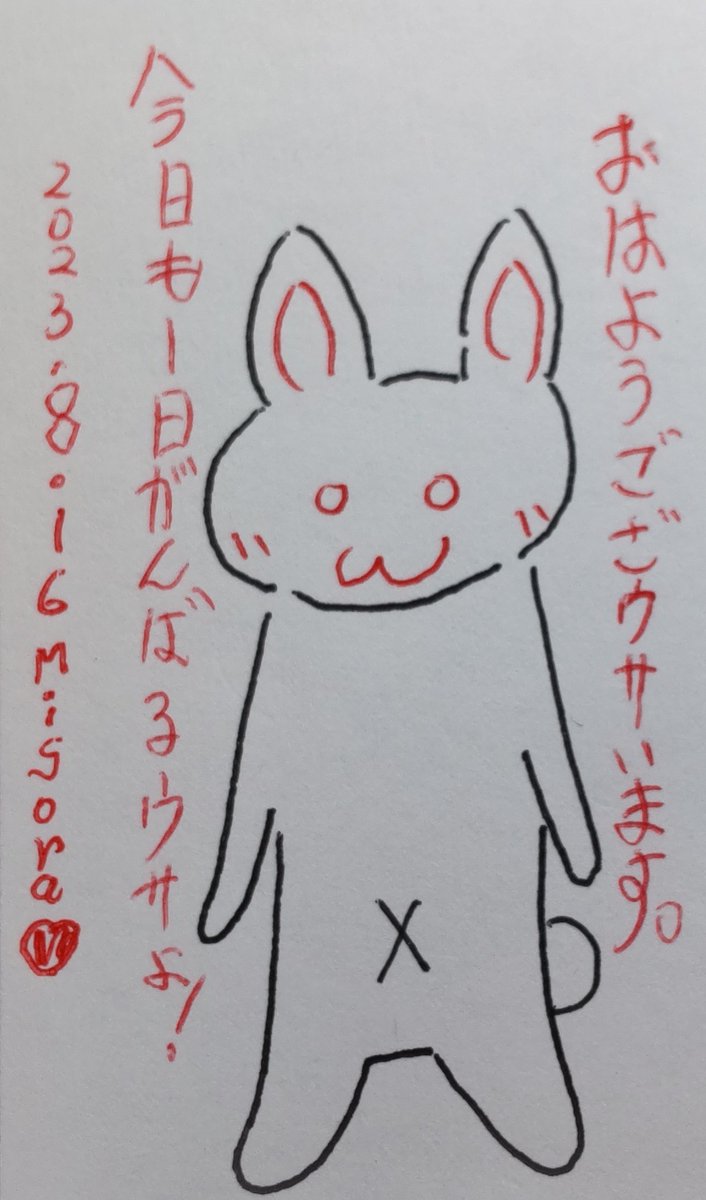 おはようございウサいます。
今日も一日がんばるウサよ!
2023.8.16 Misora